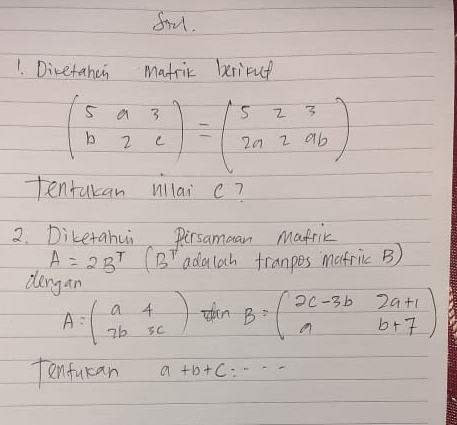 Soal.
1. Diketahui Matrik berikut
( 5 a 3 ) = ( 5 2 3 )
( b 2 c ) ( 2a 2 ab )
Tentukan nilai c?
2. Diketahui Persamaan Matrik
A = 2B^T (B^T adalah tranpos matrik B)
dengan
A = ( a 4 ) dan B = ( 2c-3b 2a+1 )
( 2b 3c ) ( a b+7 )
Tentukan a+b+c = ----